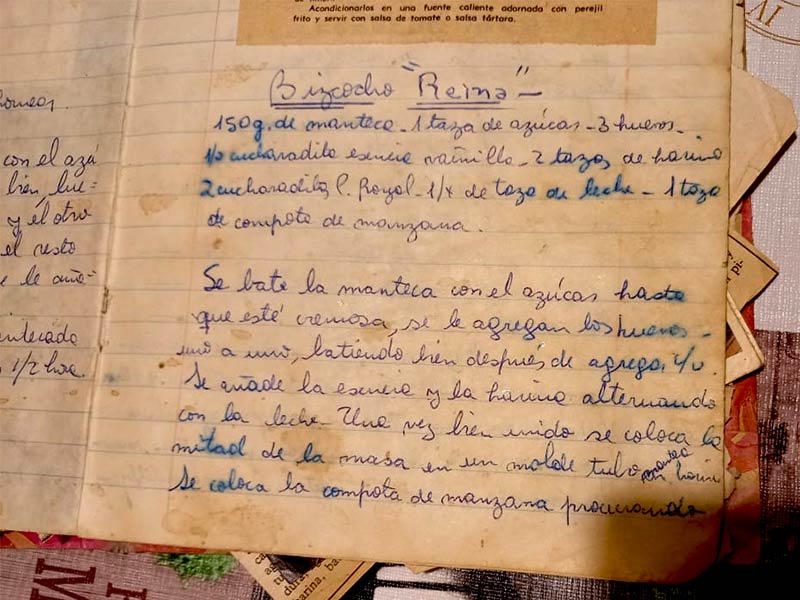 Acondicionarlos en una fuente caliente adornada con perejil
frito y servir con salsa de tomate o salsa tártara.
Bizcocho "Reina" -
150g. de manteca - 1 taza de azúcar - 3 huevos -
1/2 cucharadita esencia vainilla - 2 tazas de harina
2 cucharaditas P. Royal - 1/4 de taza de leche - 1 taza
de compota de manzana.
Se bate la manteca con el azúcar hasta
que esté cremosa, se le agregan los huevos -
uno a uno, batiendo bien después de agregar c/u.
Se añade la esencia y la harina alternando
con la leche - Una vez bien unido se coloca la
mitad de la masa en un molde tubo
Se coloca la compota de manzana procurando
con el azú
bién, lue=
y el otro
el resto
1/2 hora.